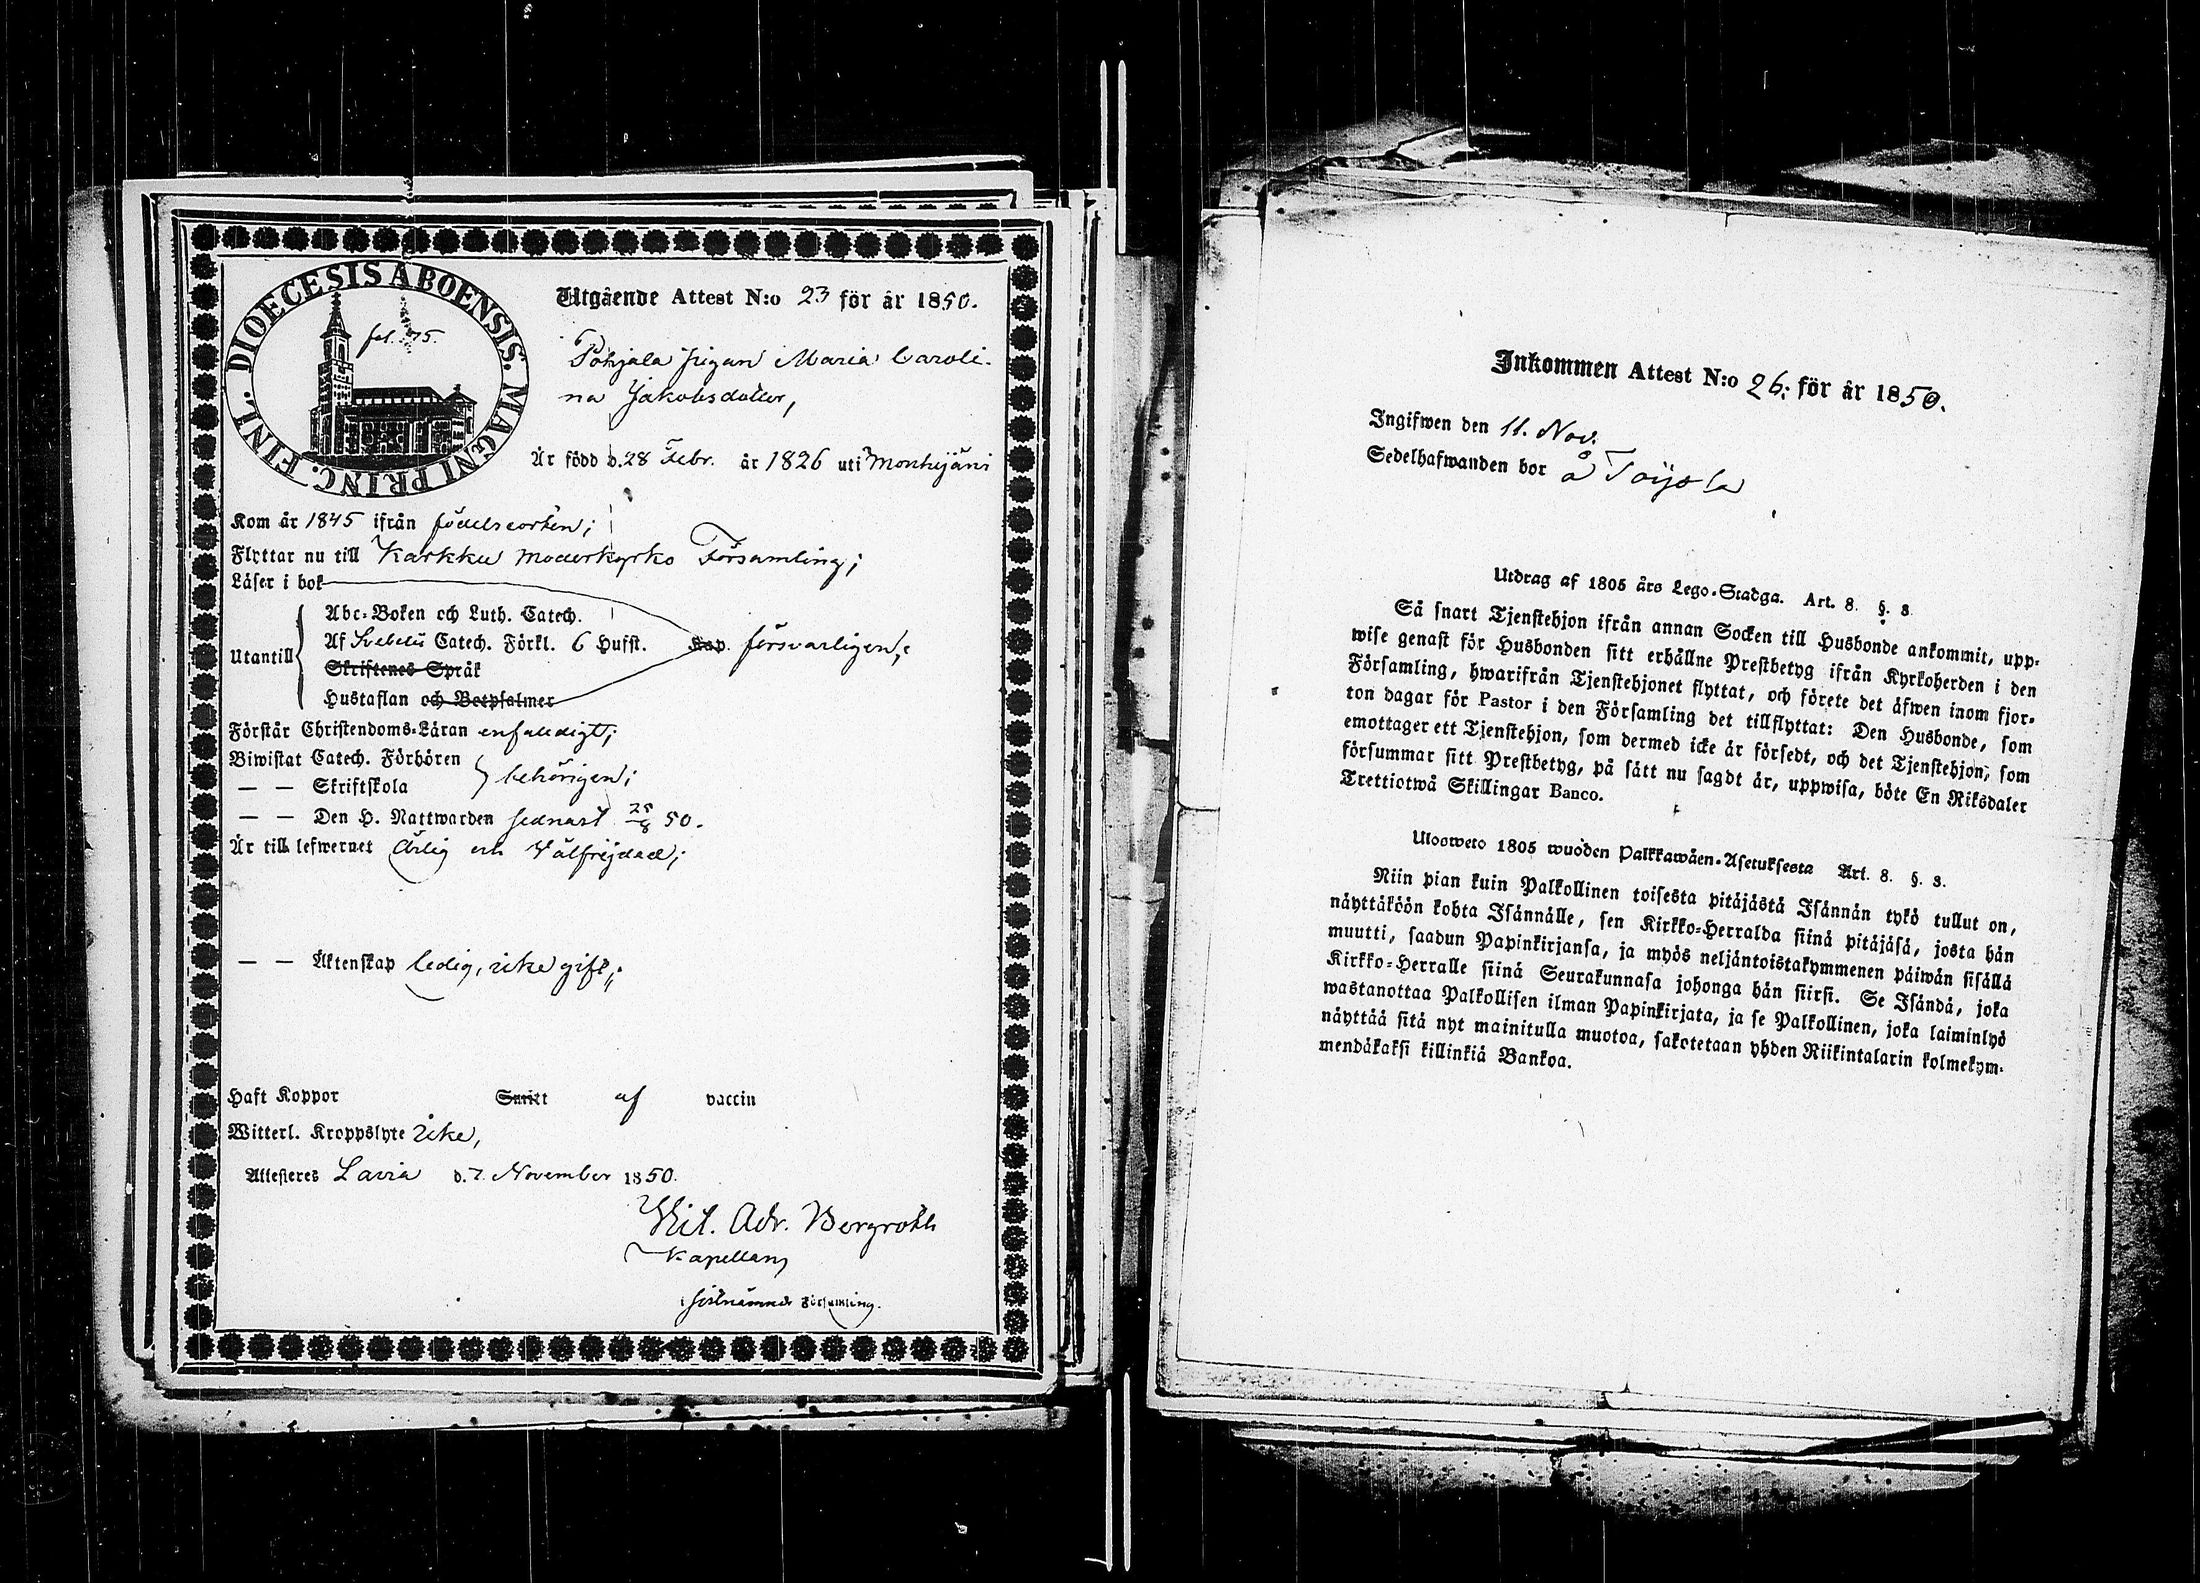 DIOECESIS ABOENSIS. MAGNI PRINC. FINL.
fol. 75.
Utgående Attest N:o 23 för år 1850.
Pohjala pigan Maria Caroli-
na Jakobsdotter,
Är född d. 28 Febr. år 1826 uti Mouhijärvi
Kom år 1845 ifrån födelseorten;
Flyttar nu till Karkku moderkyrko Församling;
Läser i bok
Abc-Boken och Luth. Catech.
Utantill Af Svebelii Catech. Förkl. 6 Hufst. Kap. försvarligen;
Skriftenes Språk
Hustaflan och Botpsalmer
Förstår Christendoms-Läran enfaldigt;
Biwistat Catech. Förhören
— — Skriftskola behörigen;
— — Den H. Nattwarden sednast 25/8 50.
Är till lefwernet Ärlig och Välfrejdad;
— — Äktenskap ledig, icke gift;
Haft Koppor Smitt af vaccin
Witterl. Kroppslyte icke,
Attesteres Lavia d. 7 November 1850.
Vil. Adr. Bergroth
Kapellan
i sistnämnde Församling.
Inkommen Attest N:o 26: för år 1850.
Ingifwen den 11. Nov.
Sedelhafwanden bor å
Utdrag af 1805 års Lego-Stadga. Art. 8. §. 8
Så snart Tjenstehjon ifrån annan Socken till Husbonde ankommit, upp-
wise genast för Husbonden sitt erhållne Prestbetyg ifrån Kyrkoherden i den
Församling, hwarifrån Tjenstehjonet flyttat, och förete det äfwen inom fjor-
ton dagar för Pastor i den Församling det tillflyttat: Den Husbonde, som
emottager ett Tjenstehjon, som dermed icke är försedt, och det Tjenstehjon, som
försummar sitt Prestbetyg, på sätt nu sagdt är, uppwisa, böte En Riksdaler
Trettiotwå Skillingar Banco.
Ulosweto 1805 wuoden Palkkawäen-Asetuksesta Art. 8. §. 8.
Niin pian kuin Palkollinen toisesta pitäjästä Isännän tykö tullut on,
näyttäköön kohta Isännälle, sen Kirkko-Herralda siinä pitäjäsä, josta hän
muutti, saadun Papinkirjansa, ja myös neljäntoistakymmenen päiwän sisällä
Kirkko-Herralle siinä Seurakunnasa johonga hän siirsi. Se Isändä, joka
wastanottaa Palkollisen ilman Papinkirjata, ja se Palkollinen, joka laiminlyö
näyttää sitä nyt mainitulla muotoa, sakotetaan yhden Riikintalarin kolmekym-
mendäkaksi killinkiä Bankoa.